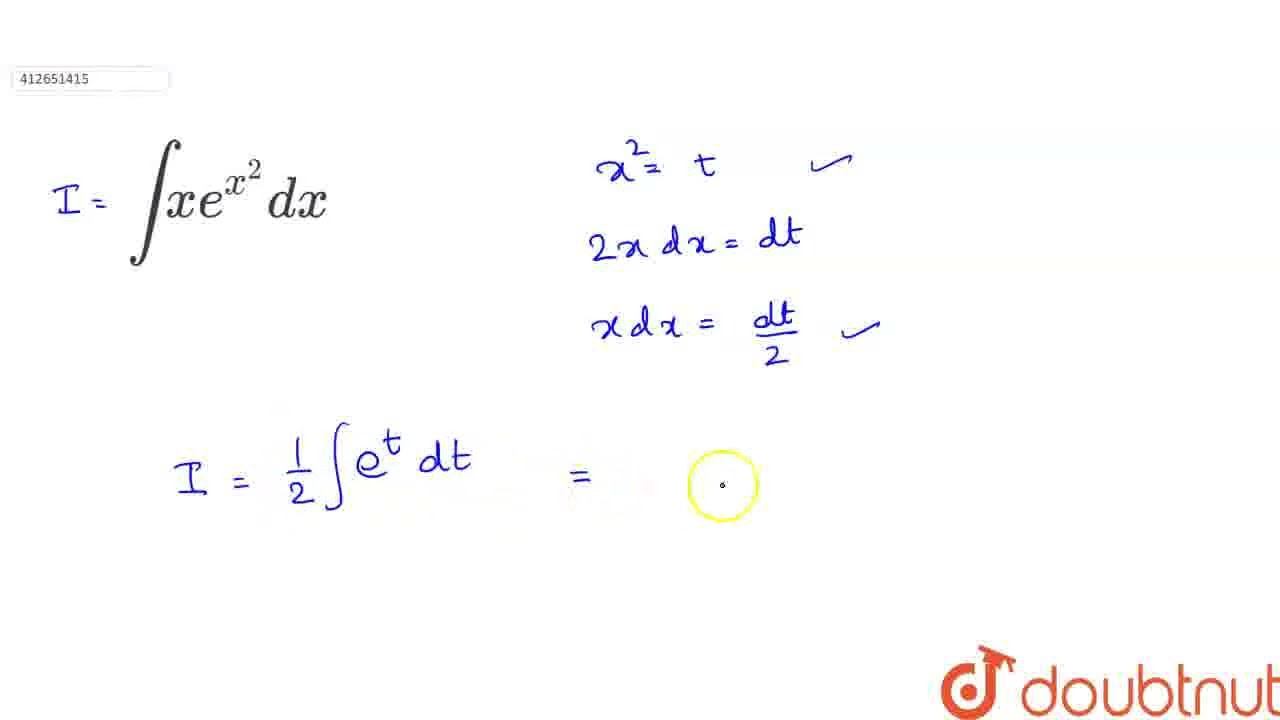 412651415
I = ∫xe^{x^2} dx
x^2 = t
2x dx = dt
x dx = dt/2
I = 1/2 ∫e^t dt =
doubtnut